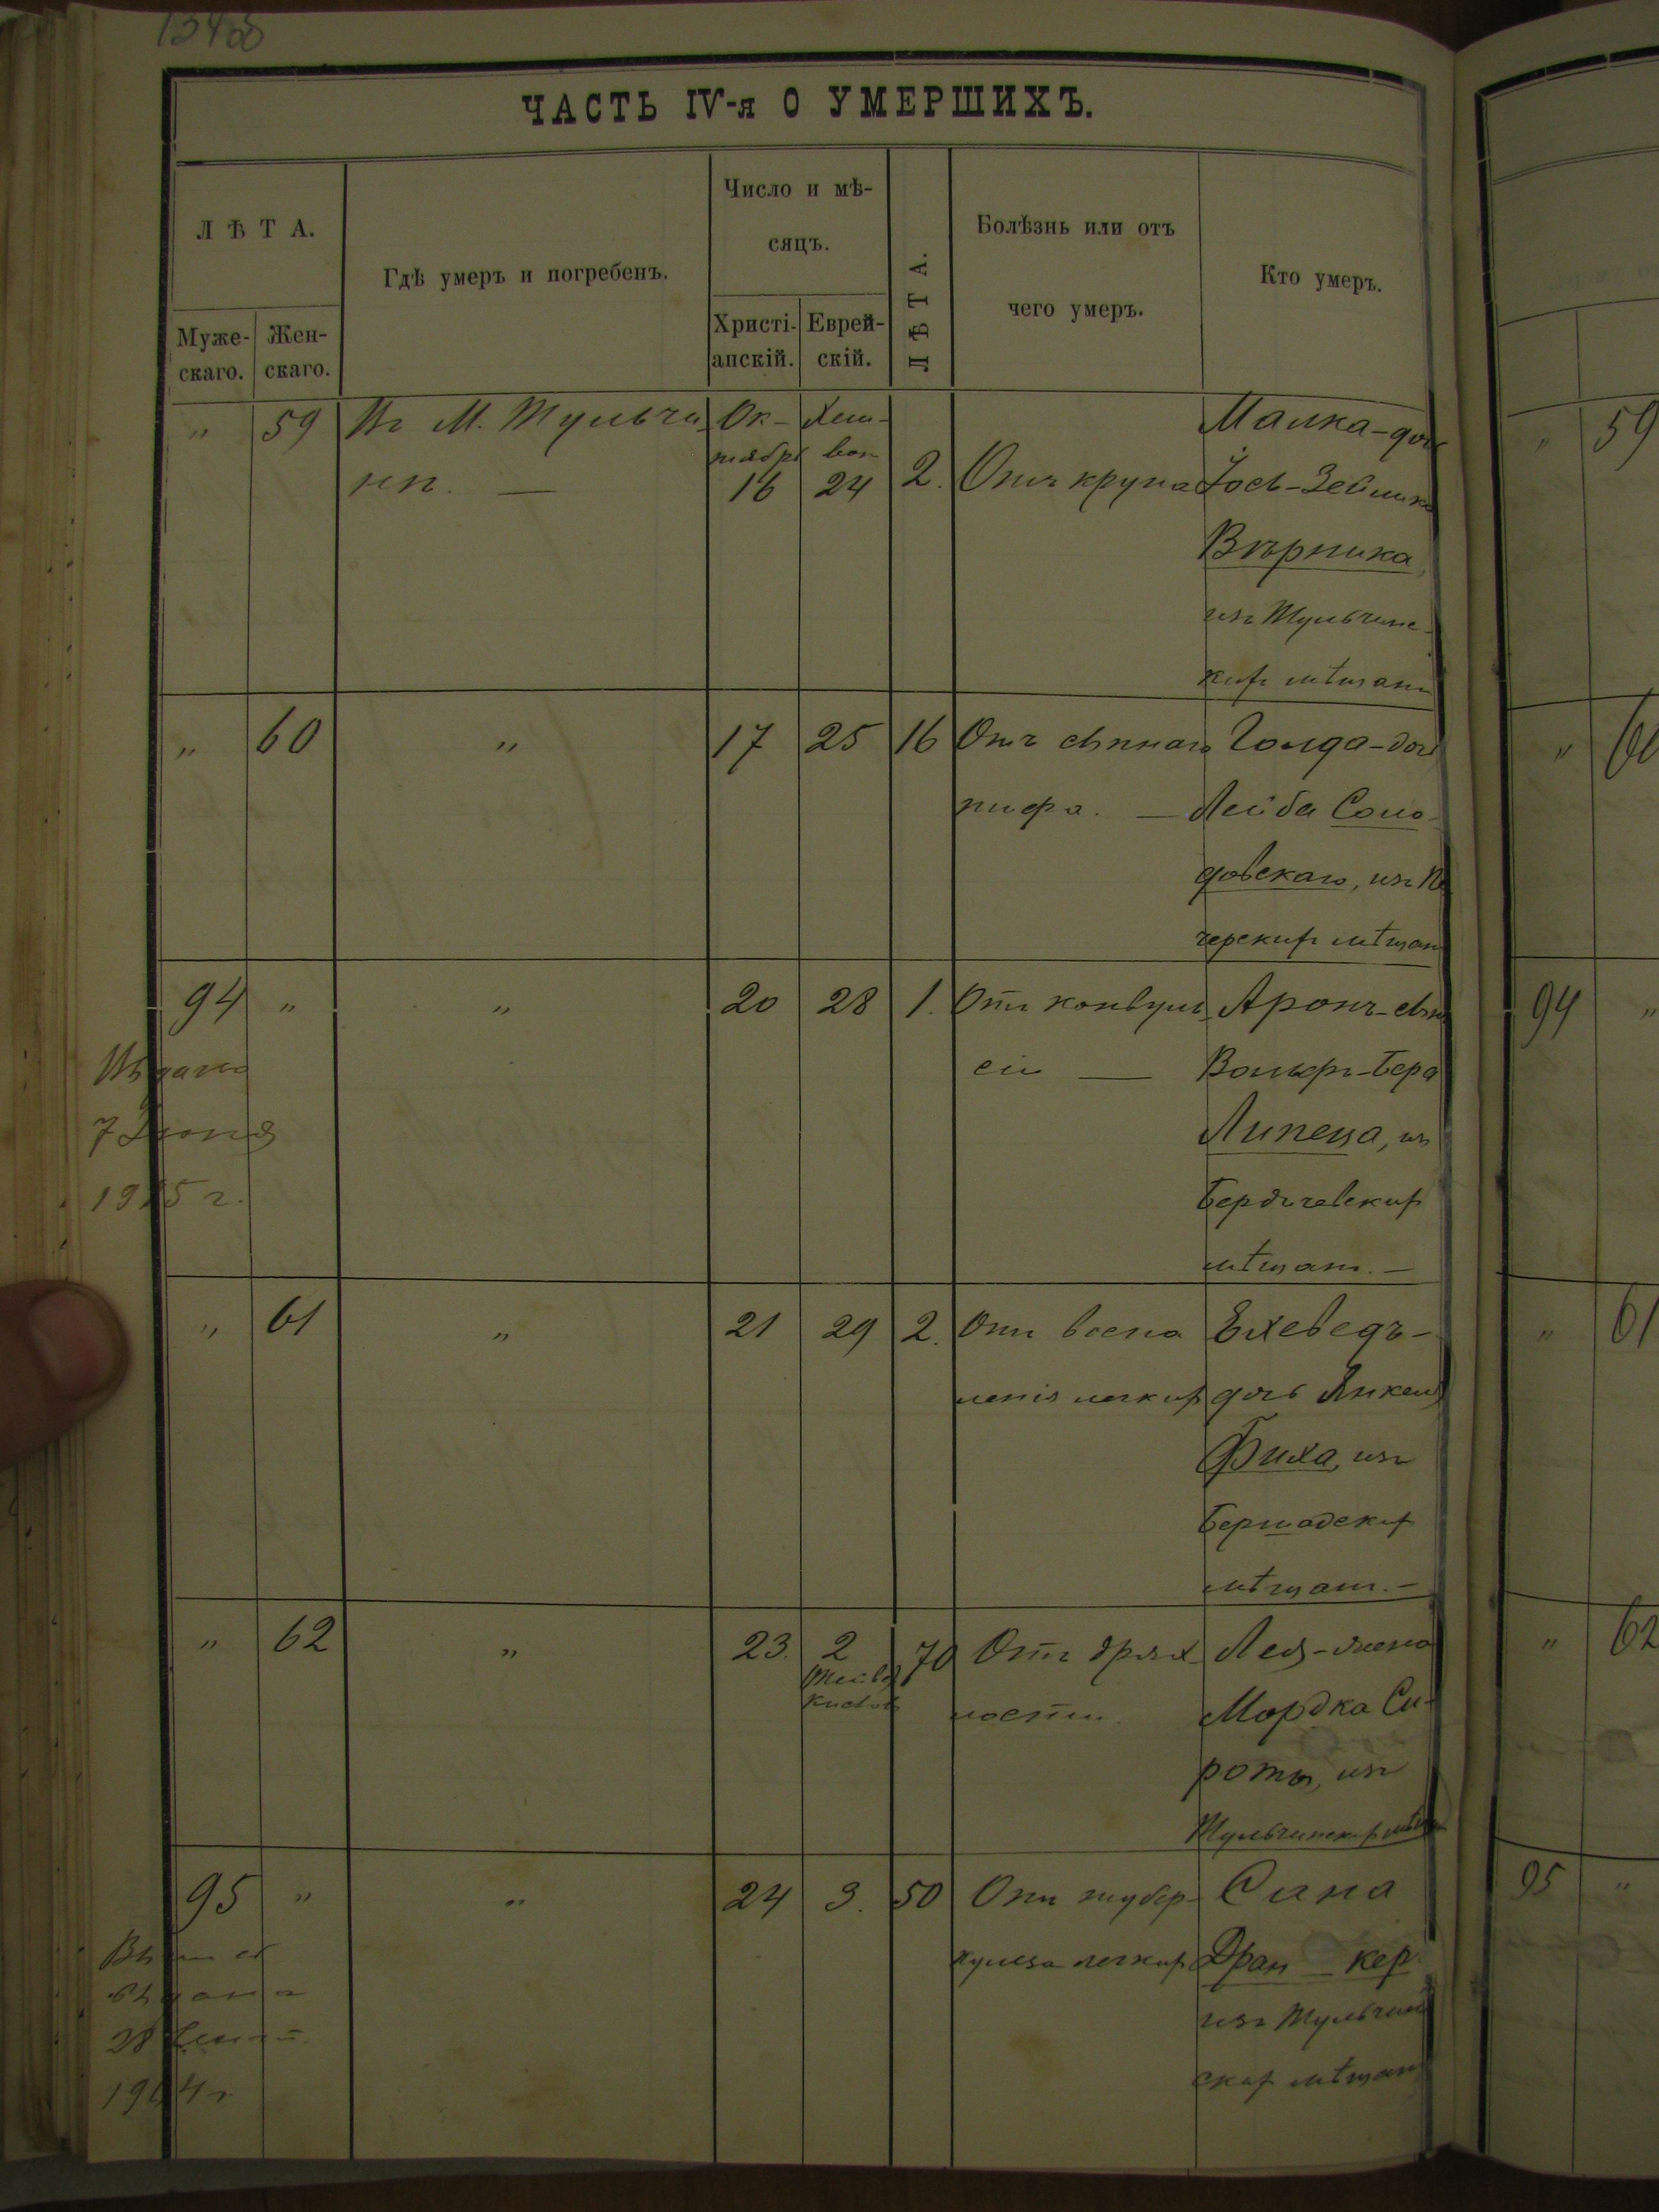 ЧАСТЬ IV-я О УМЕРШИХЪ.
ЛѢТА.
Муже-
скаго.
Жен-
скаго.
Гдѣ умеръ и погребенъ.
Число и мѣ-
сяцъ.
Христі-
анскій.
Еврей-
скій.
ЛѢТА.
Болѣзнь или отъ
чего умеръ.
Кто умеръ.
" 59 Въ М. Тульчи-
нѣ. —
Ок-
тябрь
16
Хеш-
вон
24
2.
Отъ крупа
Малка-дочь
Іось-Зейлика
Вѣрника,
изъ Тульчинс-
кихъ мѣщанъ
" 60 " 17 25 16 Отъ сыпнаго
тифа. —
Голда-дочь
Лейба Соло-
довскаго, изъ Пе
черскихъ мѣщан
94 " " 20 28 1. Отъ конвуль-
сіи —
Аронъ-сынъ
Вольфъ-Бера
Липеца, изъ
Бердичевскихъ
мѣщанъ. —
Выдано
7 Іюня
1915 г.
" 61 " 21 29 2. Отъ воспа
ленія легкихъ
Ехеведъ-
дочь Янкеля
Биха, изъ
Бершадскихъ
мѣщанъ. —
" 62 " 23. 2
Кислев
70 Отъ дрях
лости.
Лея-жена
Мордка Си-
роты, изъ
Тульчинскихъ мѣщ
95 " " 24 3. 50 Отъ тубер-
кулеза легкихъ
Сина
Дран — кер.
изъ Тульчин
скихъ мѣщан
выдана
28
1904 г.
59
"
"
94 "
" 61
" 62
95 "